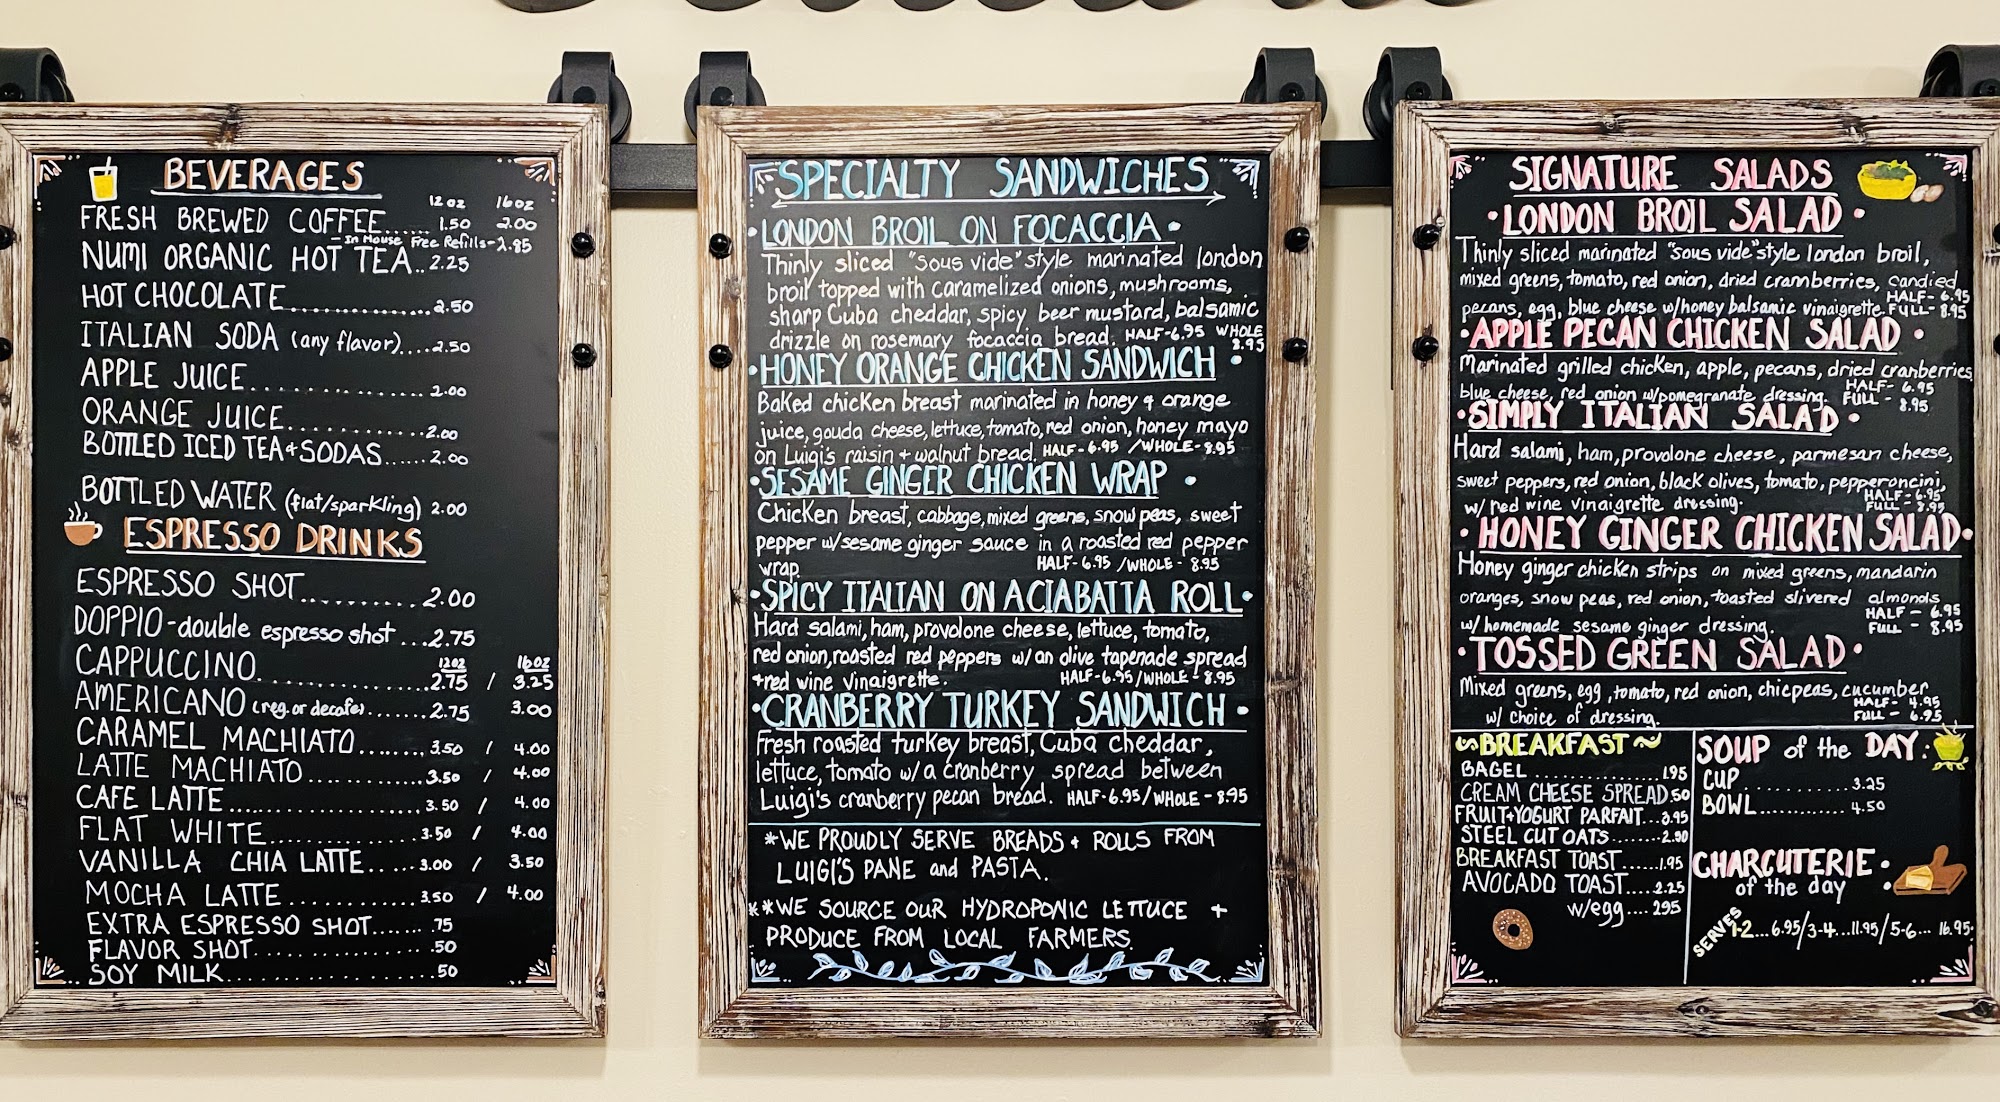 BEVERAGES
12 OZ 16 OZ
FRESH BREWED COFFEE...... 1.50 2.00
- In House Free Refills - 2.85
NUMI ORGANIC HOT TEA.. 2.25
HOT CHOCOLATE................. 2.50
ITALIAN SODA (any flavor)....2.50
APPLE JUICE................. 2.00
ORANGE JUICE............. 2.00
BOTTLED ICED TEA + SODAS...... 2.00
BOTTLED WATER (flat/sparkling) 2.00
ESPRESSO DRINKS
ESPRESSO SHOT........... 2.00
DOPPIO - double espresso shot ...2.75
12 OZ 16 OZ
CAPPUCCINO................2.75 / 3.25
AMERICANO (reg. or decafe)....... 2.75 3.00
CARAMEL MACHIATO....... 3.50 / 4.00
LATTE MACHIATO............ 3.50 / 4.00
CAFE LATTE................... 3.50 / 4.00
FLAT WHITE................. 3.50 / 4.00
VANILLA CHIA LATTE..... 3.00 / 3.50
MOCHA LATTE............... 3.50 / 4.00
EXTRA ESPRESSO SHOT....... .75
FLAVOR SHOT................ .50
SOY MILK..................... .50
SPECIALTY SANDWICHES
• LONDON BROIL ON FOCACCIA •
Thinly sliced "sous vide" style marinated london
broil topped with caramelized onions, mushrooms,
sharp Cuba cheddar, spicy beer mustard, balsamic
drizzle on rosemary focaccia bread. HALF-6.95 WHOLE
8.95
• HONEY ORANGE CHICKEN SANDWICH •
Baked chicken breast marinated in honey & orange
juice, gouda cheese, lettuce, tomato, red onion, honey mayo
on Luigi's raisin + walnut bread. HALF - 6.95 / WHOLE - 8.95
• SESAME GINGER CHICKEN WRAP •
Chicken breast, cabbage, mixed greens, snow peas, sweet
pepper w/sesame ginger sauce in a roasted red pepper
wrap. HALF - 6.95 / WHOLE - 8.95
• SPICY ITALIAN ON A CIABATTA ROLL •
Hard salami, ham, provolone cheese, lettuce, tomato,
red onion, roasted red peppers w/ an olive tapenade spread
+ red wine vinaigrette. HALF-6.95 / WHOLE - 8.95
• CRANBERRY TURKEY SANDWICH •
Fresh roasted turkey breast, Cuba cheddar,
lettuce, tomato w/ a cranberry spread between
Luigi's cranberry pecan bread. HALF-6.95 / WHOLE - 8.95
*WE PROUDLY SERVE BREADS + ROLLS FROM
LUIGI'S PANE and PASTA.
**WE SOURCE OUR HYDROPONIC LETTUCE +
PRODUCE FROM LOCAL FARMERS.
SIGNATURE SALADS
• LONDON BROIL SALAD •
Thinly sliced marinated "sous vide" style london broil,
mixed greens, tomato, red onion, dried crannberries, candied
pecans, egg, blue cheese w/honey balsamic vinaigrette. HALF - 6.95
FULL - 8.95
• APPLE PECAN CHICKEN SALAD •
Marinated grilled chicken, apple, pecans, dried cranberries,
blue cheese, red onion w/pomegranate dressing. HALF - 6.95
FULL - 8.95
• SIMPLY ITALIAN SALAD •
Hard salami, ham, provolone cheese, parmesan cheese,
sweet peppers, red onion, black olives, tomato, pepperoncini,
w/ red wine vinaigrette dressing. HALF - 6.95
FULL - 8.95
• HONEY GINGER CHICKEN SALAD •
Honey ginger chicken strips on mixed greens, mandarin
oranges, snow peas, red onion, toasted slivered almonds
w/ homemade sesame ginger dressing. HALF - 6.95
FULL - 8.95
• TOSSED GREEN SALAD •
Mixed greens, egg, tomato, red onion, chicpeas, cucumber
w/ choice of dressing. HALF - 4.95
FULL - 6.95
~BREAKFAST~
BAGEL.................. 1.95
CREAM CHEESE SPREAD .50
FRUIT+YOGURT PARFAIT...3.95
STEEL CUT OATS.........2.90
BREAKFAST TOAST......1.95
AVOCADO TOAST..... 2.25
w/egg.... 2.95
SOUP of the DAY:
CUP ............ 3.25
BOWL............ 4.50
CHARCUTERIE •
of the day •
SERVES 1-2...6.95/3-4...11.95/5-6... 16.95